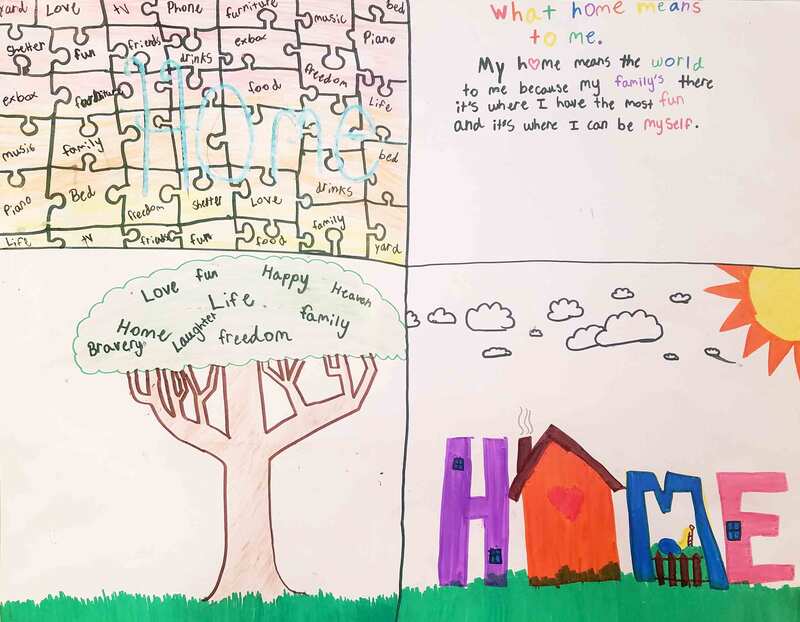 yard Love tv Phone furniture music bed
shelter fun friends drinks exbox freedom Piano
exbox food Life
music family bed
Piano Bed freedom shelter Love drinks
Life tv friends fun food family yard
Home
What home means
to me.
My home means the world
to me because my family's there
it's where I have the most fun
and it's where I can be myself.
Love fun Happy Heaven
Life
Home Laughter freedom family
Bravery
HOME